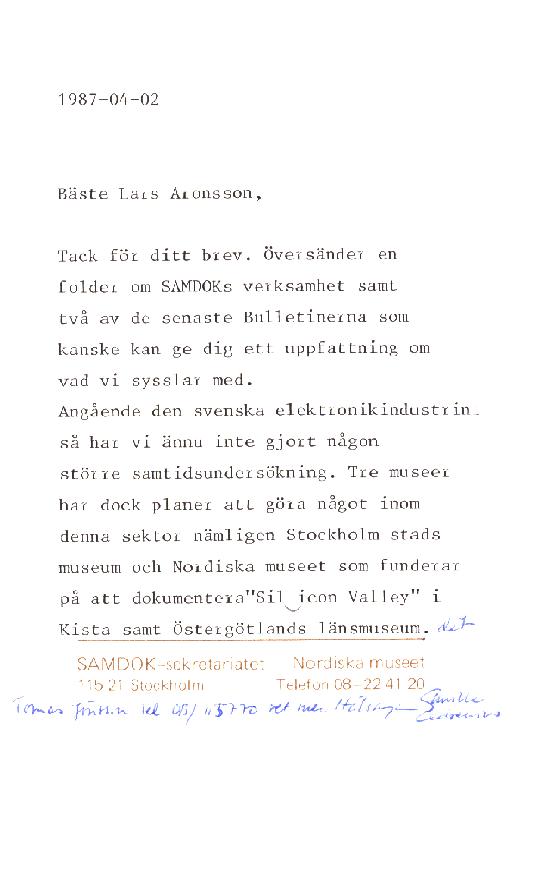 1987-04-02
Bäste Lars Aronsson,
Tack för ditt brev. Översänder en
folder om SAMDOKs verksamhet samt
två av de senaste Bulletinerna som
kanske kan ge dig ett uppfattning om
vad vi sysslar med.
Angående den svenska elektronikindustrin
så har vi ännu inte gjort någon
större samtidsundersökning. Tre museer
har dock planer att göra något inom
denna sektor nämligen Stockholm stads
museum och Nordiska museet som funderar
på att dokumentera"Sil icon Valley" i
Kista samt Östergötlands länsmuseum.
SAMDOK-sekretariatet Nordiska museet
115 21 Stockholm Telefon 08-22 41 20
Tomas tel vet mer. Gunilla